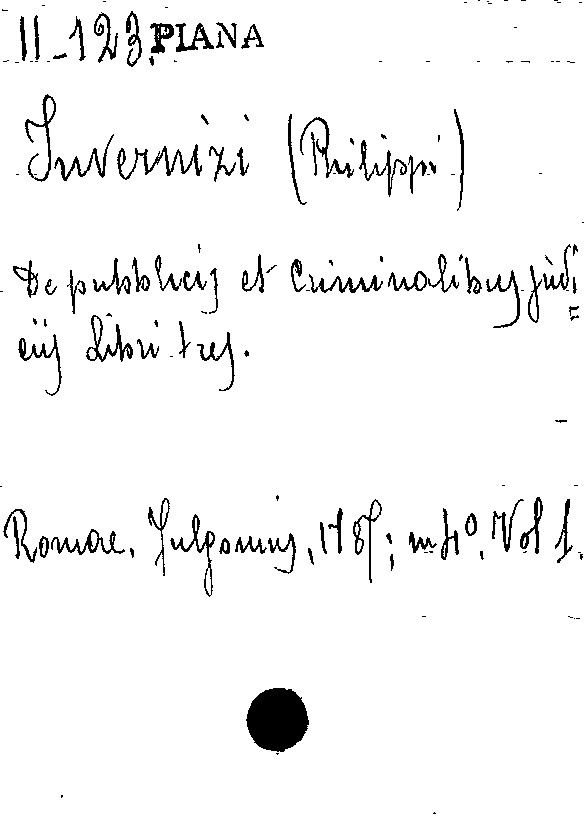 II-123.PIANA
Invernizi (Philippi)
De pubblicis et Criminalibus judi=
ciis Libri tres.
Romae. Fulgonius, 1787; in 4º. Vol 1.